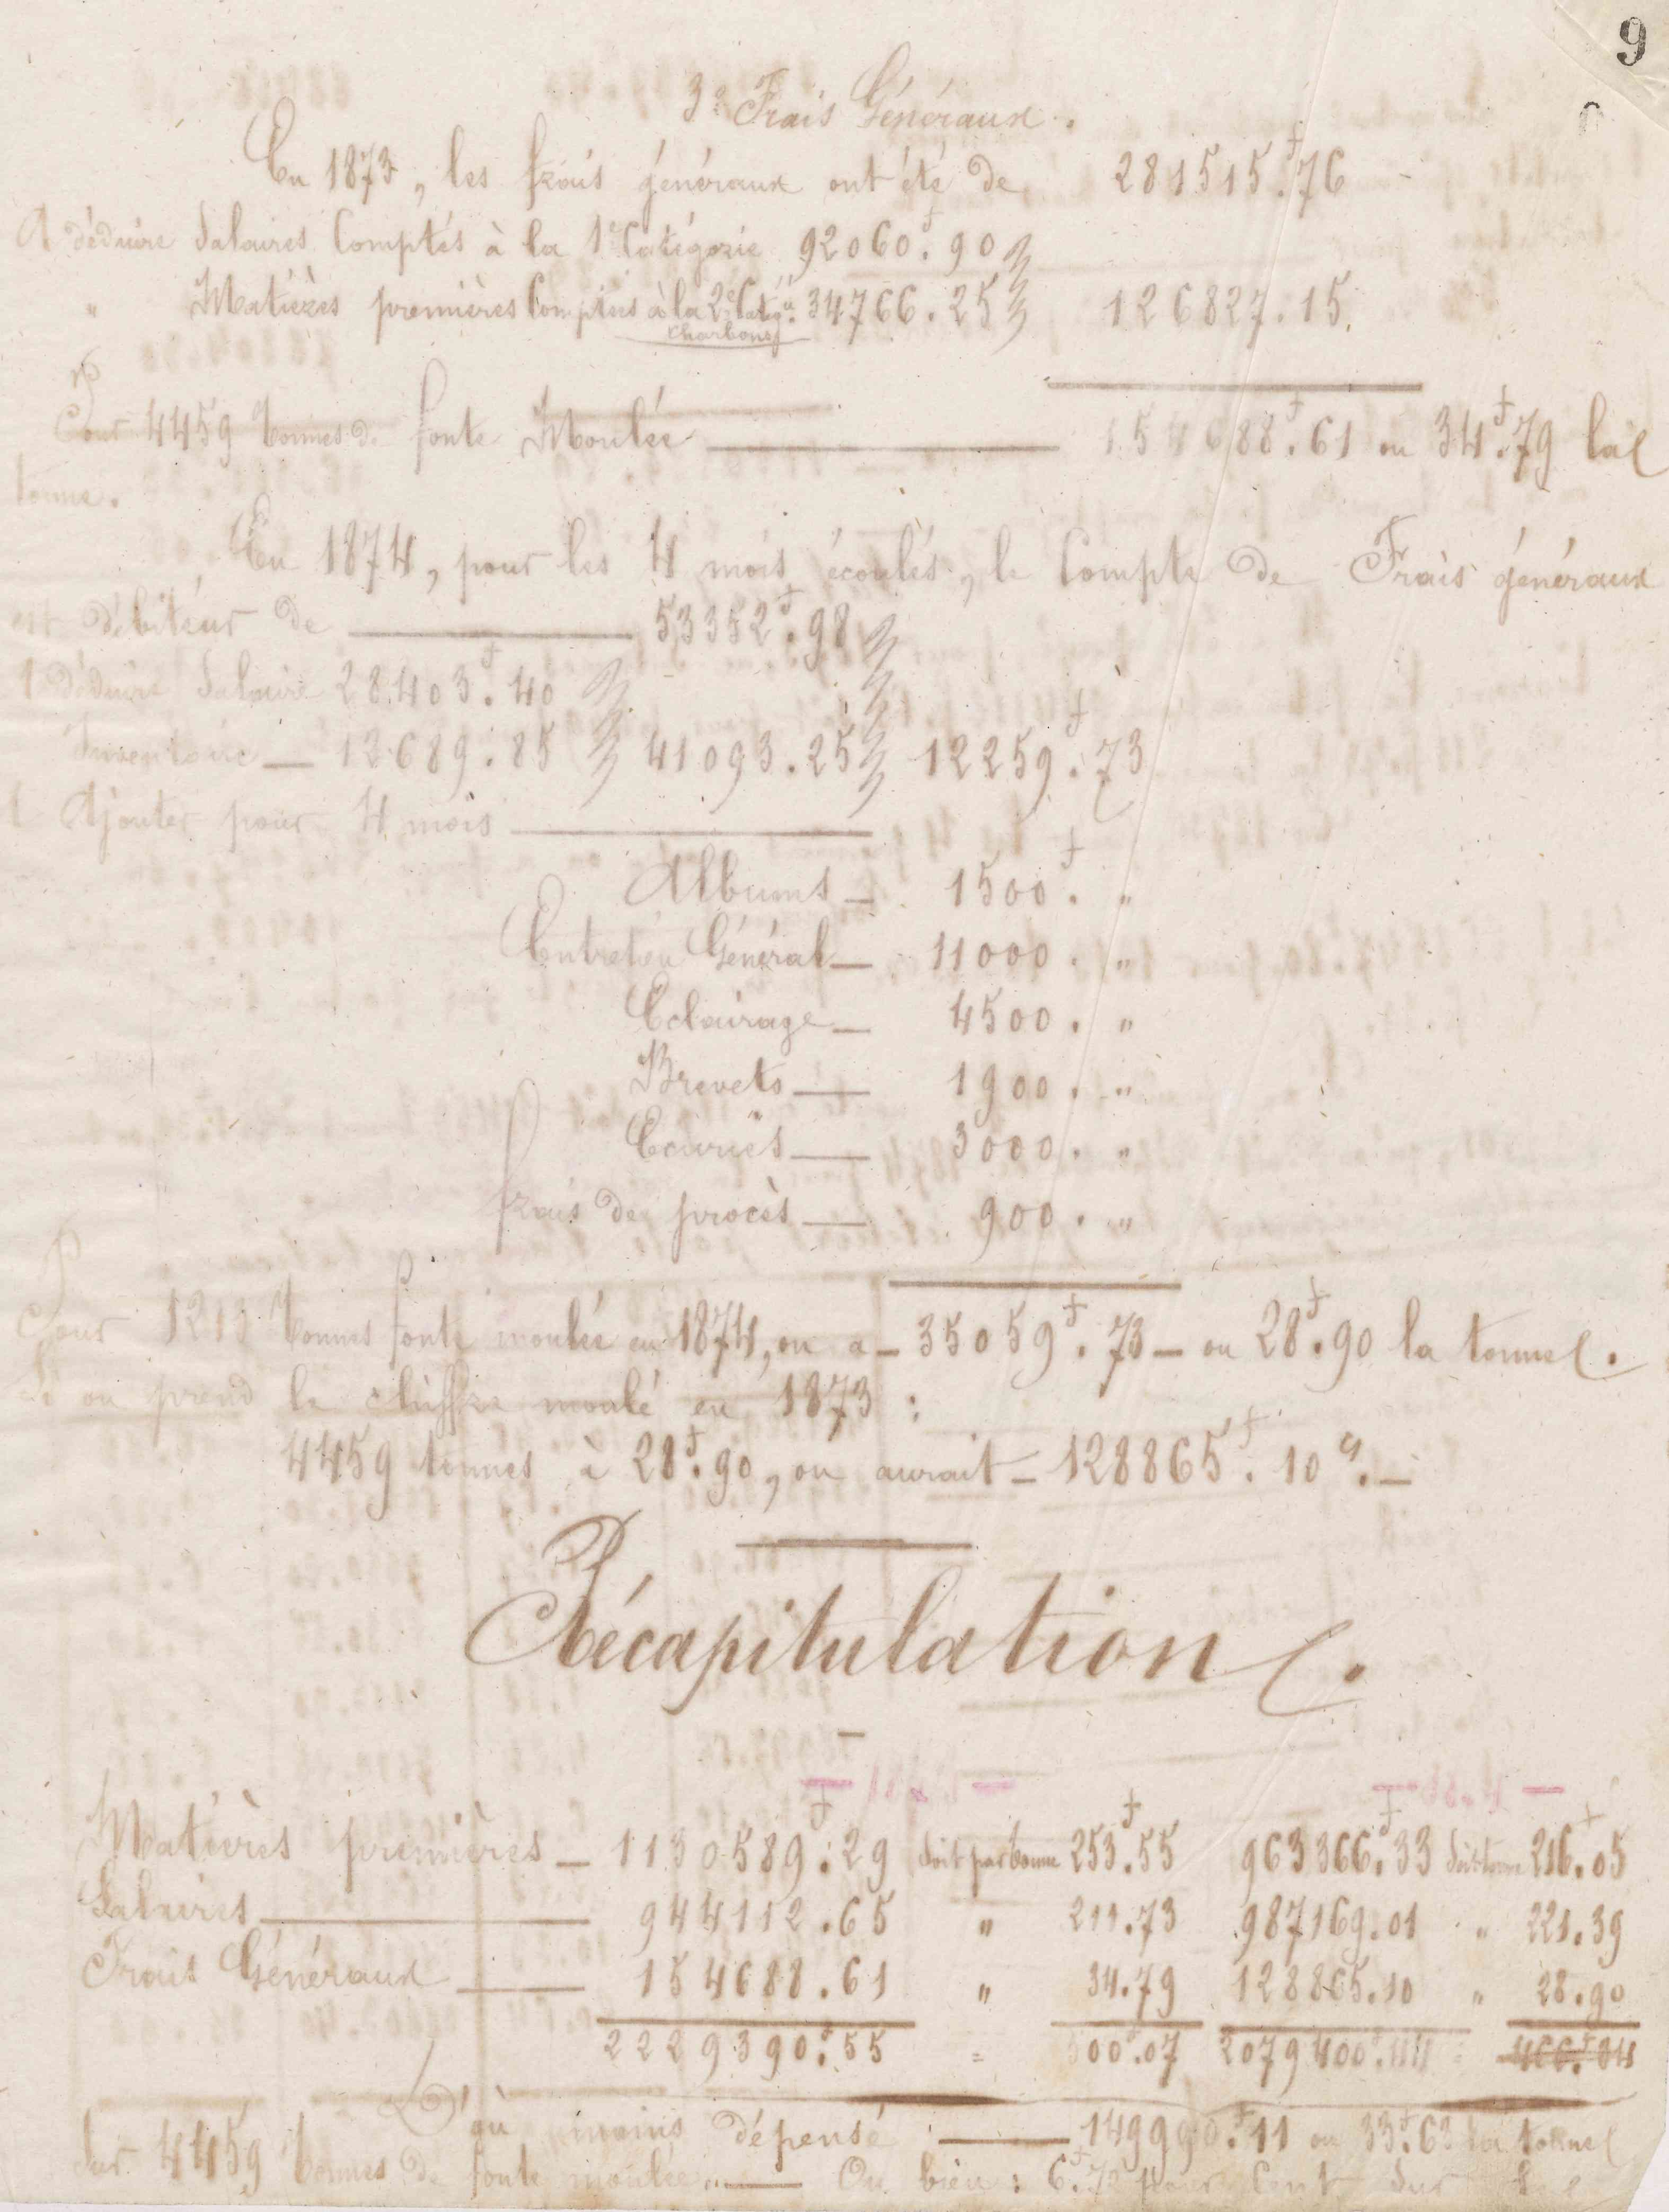 9
3º Frais Généraux.
En 1873, les frais généraux ont été de 281515f.76
A déduire Salaires Comptés à la 1e Catégorie 92060f.90
" Matières premières Comptées à la 2e Catég.ie 34766.25 126827.15
charbons
Pour 4459 tonnes de fonte Moulée — 154688f.61 ou 34f.79 la
tonne.
En 1874, pour les 4 mois écoulés, le Compte de Frais généraux
est débiteur de — 53352f.98
A déduire Salaire 28403f.40
Inventaire — 12689.85 41093.25 12259f.73
A Ajouter pour 4 mois —
Albums — 1500f. "
Entretien Général — 11000. "
Eclairage — 4500. "
Brevets — 1900. "
Ecuries — 3000. "
frais de procès — 900. "
Pour 1213 tonnes fonte moulée en 1874, on a — 35059f.73 — ou 28f.90 la tonne.
Si on prend le chiffre moulé en 1873 :
4459 tonnes à 28f.90, on aurait — 128865f.10c. —
Récapitulation.
Matières premières — 1130589f.29 Soit par tonne 253f.55 963366f.33 Soit tonne 216f.05
Salaires — 944112.65 " 211.73 987169.01 " 221.39
Frais Généraux — 154688.61 " 34.79 128865.10 " 28.90
2229390f.55 = 500f.07 2079400f.44 = 466f.04
D'où moins dépensé — 149990f.11 ou 33f.63 la tonne
Sur 4459 tonnes de fonte moulée. — Ou bien : 6f.72 pour Cent sur